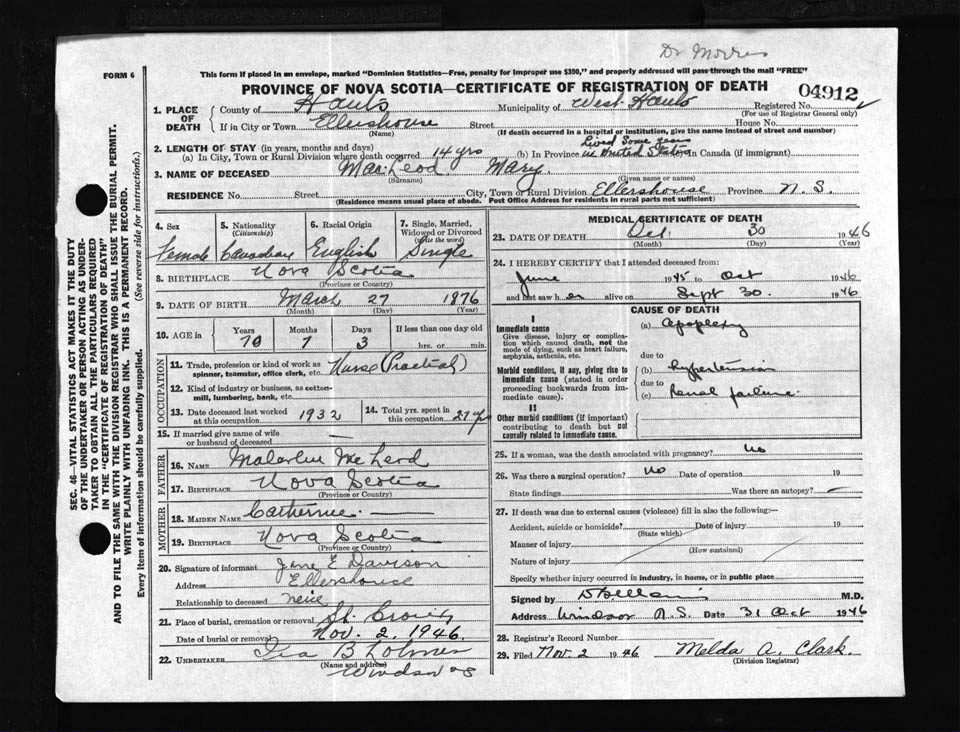 Dr Morris
FORM 6
This form if placed in an envelope, marked "Dominion Statistics—Free, penalty for improper use $300," and properly addressed will pass through the mail "FREE"
PROVINCE OF NOVA SCOTIA—CERTIFICATE OF REGISTRATION OF DEATH
04912
1. PLACE OF DEATH
County of Hants Municipality of West Hants Registered No.
(For use of Registrar General only)
If in City or Town Ellershouse Street House No.
(Name) (If death occurred in a hospital or institution, give the name instead of street and number)
2. LENGTH OF STAY (in years, months and days)
Lived Some years
(a) In City, Town or Rural Division where death occurred 14 yrs (b) In Province in United States In Canada (if immigrant)
3. NAME OF DECEASED MacLeod Mary
(Surname) (Given name or names)
RESIDENCE No. Street City, Town or Rural Division Ellershouse Province N. S.
(Residence means usual place of abode. Post Office Address for residents in rural parts not sufficient)
4. Sex 5. Nationality (Citizenship) 6. Racial Origin 7. Single, Married, Widowed or Divorced (write the word)
Female Canadian English Single
8. BIRTHPLACE Nova Scotia
(Province or Country)
9. DATE OF BIRTH March 27 1876
(Month) (Day) (Year)
10. AGE in Years Months Days If less than one day old
70 7 3 hrs. or min.
OCCUPATION
11. Trade, profession or kind of work as spinner, teamster, office clerk, etc. Nurse (Practical)
12. Kind of industry or business, as cotton-mill, lumbering, bank, etc.
13. Date deceased last worked at this occupation 1932 14. Total yrs. spent in this occupation 27
15. If married give name of wife or husband of deceased —
FATHER
16. NAME McLeod
17. BIRTHPLACE Nova Scotia
(Province or Country)
MOTHER
18. MAIDEN NAME Catherine —
19. BIRTHPLACE Nova Scotia
(Province or Country)
20. Signature of informant Jane E Davison
Address Ellershouse
Relationship to deceased neice
21. Place of burial, cremation or removal St. Croix
Date of burial or removal Nov. 2. 1946.
22. UNDERTAKER Ira B
(Name and address)
Windsor NS
MEDICAL CERTIFICATE OF DEATH
23. DATE OF DEATH Oct. 30 1946
(Month) (Day) (Year)
24. I HEREBY CERTIFY that I attended deceased from:
June 1945 to Oct 1946
and last saw her alive on Sept 30. 1946
CAUSE OF DEATH
I
Immediate cause
Give disease, injury or complication which caused death, not the mode of dying, such as heart failure, asphyxia, asthenia, etc.
(a) apoplexy
due to
Morbid conditions, if any, giving rise to immediate cause (stated in order proceeding backwards from immediate cause).
(b) hypertension
due to
(c) Renal failure.
II
Other morbid conditions (if important) contributing to death but not causally related to immediate cause.
25. If a woman, was the death associated with pregnancy? No
26. Was there a surgical operation? No Date of operation 19
State findings Was there an autopsy? —
27. If death was due to external causes (violence) fill in also the following:—
Accident, suicide or homicide? Date of injury 19
(State which)
Manner of injury
(How sustained)
Nature of injury
Specify whether injury occurred in industry, in home, or in public place
Signed by M.D.
Address Windsor N.S. Date 31 Oct 1946
28. Registrar's Record Number
29. Filed Nov 2 1946 Melda A. Clark.
(Division Registrar)
SEC. 46—VITAL STATISTICS ACT MAKES IT THE DUTY
OF THE UNDERTAKER OR PERSON ACTING AS UNDER-
TAKER TO OBTAIN ALL THE PARTICULARS REQUIRED
IN THE "CERTIFICATE OF REGISTRATION OF DEATH"
AND TO FILE THE SAME WITH THE DIVISION REGISTRAR WHO SHALL ISSUE THE BURIAL PERMIT.
WRITE PLAINLY WITH UNFADING INK. THIS IS A PERMANENT RECORD.
Every item of information should be carefully supplied. (See reverse side for instructions.)